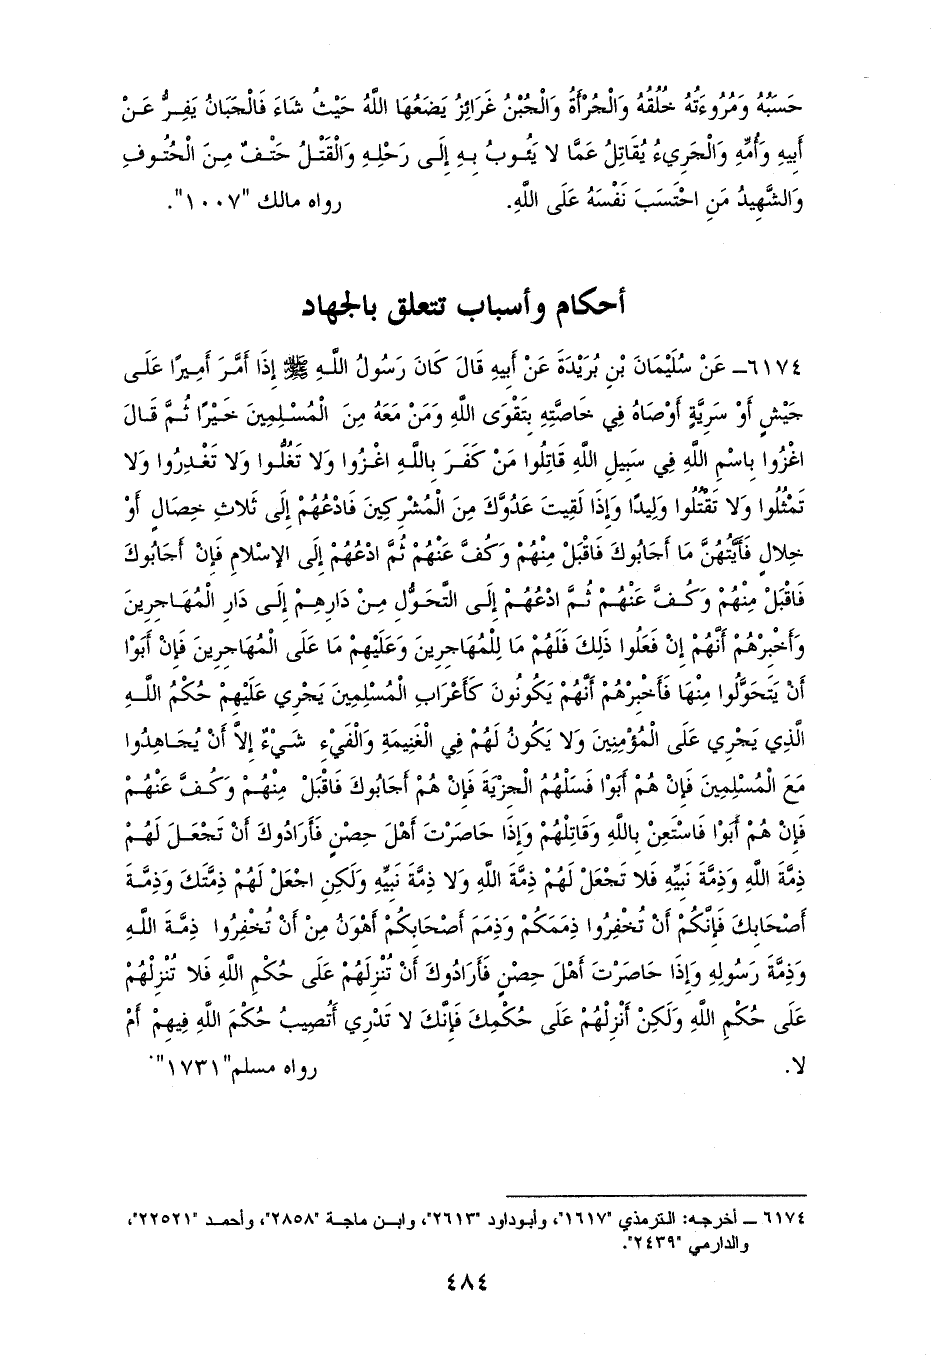 حَسَبُهُ وَمُرُوءَتُهُ خُلُقُهُ وَالْجُرْأَةُ وَالْجُبْنُ غَرَائِزُ يَضَعُهَا اللَّهُ حَيْثُ شَاءَ فَالْجَبَانُ يَفِرُّ عَنْ
أَبِيهِ وَأُمِّهِ وَالْجَرِيءُ يُقَاتِلُ عَمَّا لا يَئُوبُ بِهِ إِلَى رَحْلِهِ وَالْقَتْلُ حَتْفٌ مِنَ الْحُتُوفِ
وَالشَّهِيدُ مَنِ احْتَسَبَ نَفْسَهُ عَلَى اللَّهِ. رواه مالك "١٠٠٧".
أحكام وأسباب تتعلق بالجهاد
٦١٧٤ـ عَنْ سُلَيْمَانَ بْنِ بُرَيْدَةَ عَنْ أَبِيهِ قَالَ كَانَ رَسُولُ اللَّهِ ﷺ إِذَا أَمَّرَ أَمِيرًا عَلَى
جَيْشٍ أَوْ سَرِيَّةٍ أَوْصَاهُ فِي خَاصَّتِهِ بِتَقْوَى اللَّهِ وَمَنْ مَعَهُ مِنَ الْمُسْلِمِينَ خَيْرًا ثُمَّ قَالَ
اغْزُوا بِاسْمِ اللَّهِ فِي سَبِيلِ اللَّهِ قَاتِلُوا مَنْ كَفَرَ بِاللَّهِ اغْزُوا وَلا تَغُلُّوا وَلا تَغْدِرُوا وَلا
تَمْثُلُوا وَلا تَقْتُلُوا وَلِيدًا وَإِذَا لَقِيتَ عَدُوَّكَ مِنَ الْمُشْرِكِينَ فَادْعُهُمْ إِلَى ثَلاثِ خِصَالٍ أَوْ
خِلالٍ فَأَيَّتُهُنَّ مَا أَجَابُوكَ فَاقْبَلْ مِنْهُمْ وَكُفَّ عَنْهُمْ ثُمَّ ادْعُهُمْ إِلَى الإِسْلامِ فَإِنْ أَجَابُوكَ
فَاقْبَلْ مِنْهُمْ وَكُفَّ عَنْهُمْ ثُمَّ ادْعُهُمْ إِلَى التَّحَوُّلِ مِنْ دَارِهِمْ إِلَى دَارِ الْمُهَاجِرِينَ
وَأَخْبِرْهُمْ أَنَّهُمْ إِنْ فَعَلُوا ذَلِكَ فَلَهُمْ مَا لِلْمُهَاجِرِينَ وَعَلَيْهِمْ مَا عَلَى الْمُهَاجِرِينَ فَإِنْ أَبَوْا
أَنْ يَتَحَوَّلُوا مِنْهَا فَأَخْبِرْهُمْ أَنَّهُمْ يَكُونُونَ كَأَعْرَابِ الْمُسْلِمِينَ يَجْرِي عَلَيْهِمْ حُكْمُ اللَّهِ
الَّذِي يَجْرِي عَلَى الْمُؤْمِنِينَ وَلا يَكُونُ لَهُمْ فِي الْغَنِيمَةِ وَالْفَيْءِ شَيْءٌ إِلاَّ أَنْ يُجَاهِدُوا
مَعَ الْمُسْلِمِينَ فَإِنْ هُمْ أَبَوْا فَسَلْهُمُ الْجِزْيَةَ فَإِنْ هُمْ أَجَابُوكَ فَاقْبَلْ مِنْهُمْ وَكُفَّ عَنْهُمْ
فَإِنْ هُمْ أَبَوْا فَاسْتَعِنْ بِاللَّهِ وَقَاتِلْهُمْ وَإِذَا حَاصَرْتَ أَهْلَ حِصْنٍ فَأَرَادُوكَ أَنْ تَجْعَلَ لَهُمْ
ذِمَّةَ اللَّهِ وَذِمَّةَ نَبِيِّهِ فَلا تَجْعَلْ لَهُمْ ذِمَّةَ اللَّهِ وَلا ذِمَّةَ نَبِيِّهِ وَلَكِنِ اجْعَلْ لَهُمْ ذِمَّتَكَ وَذِمَّةَ
أَصْحَابِكَ فَإِنَّكُمْ أَنْ تُخْفِرُوا ذِمَمَكُمْ وَذِمَمَ أَصْحَابِكُمْ أَهْوَنُ مِنْ أَنْ تُخْفِرُوا ذِمَّةَ اللَّهِ
وَذِمَّةَ رَسُولِهِ وَإِذَا حَاصَرْتَ أَهْلَ حِصْنٍ فَأَرَادُوكَ أَنْ تُنْزِلَهُمْ عَلَى حُكْمِ اللَّهِ فَلا تُنْزِلْهُمْ
عَلَى حُكْمِ اللَّهِ وَلَكِنْ أَنْزِلْهُمْ عَلَى حُكْمِكَ فَإِنَّكَ لا تَدْرِي أَتُصِيبُ حُكْمَ اللَّهِ فِيهِمْ أَمْ
لا. رواه مسلم"١٧٣١".
٦١٧٤ ـ أخرجه: الترمذي "١٦١٧"، وأبوداود "٢٦١٣"، وابن ماجة "٢٨٥٨"، وأحمد "٢٢٥٢١"،
والدارمي "٢٤٣٩".
٤٨٤